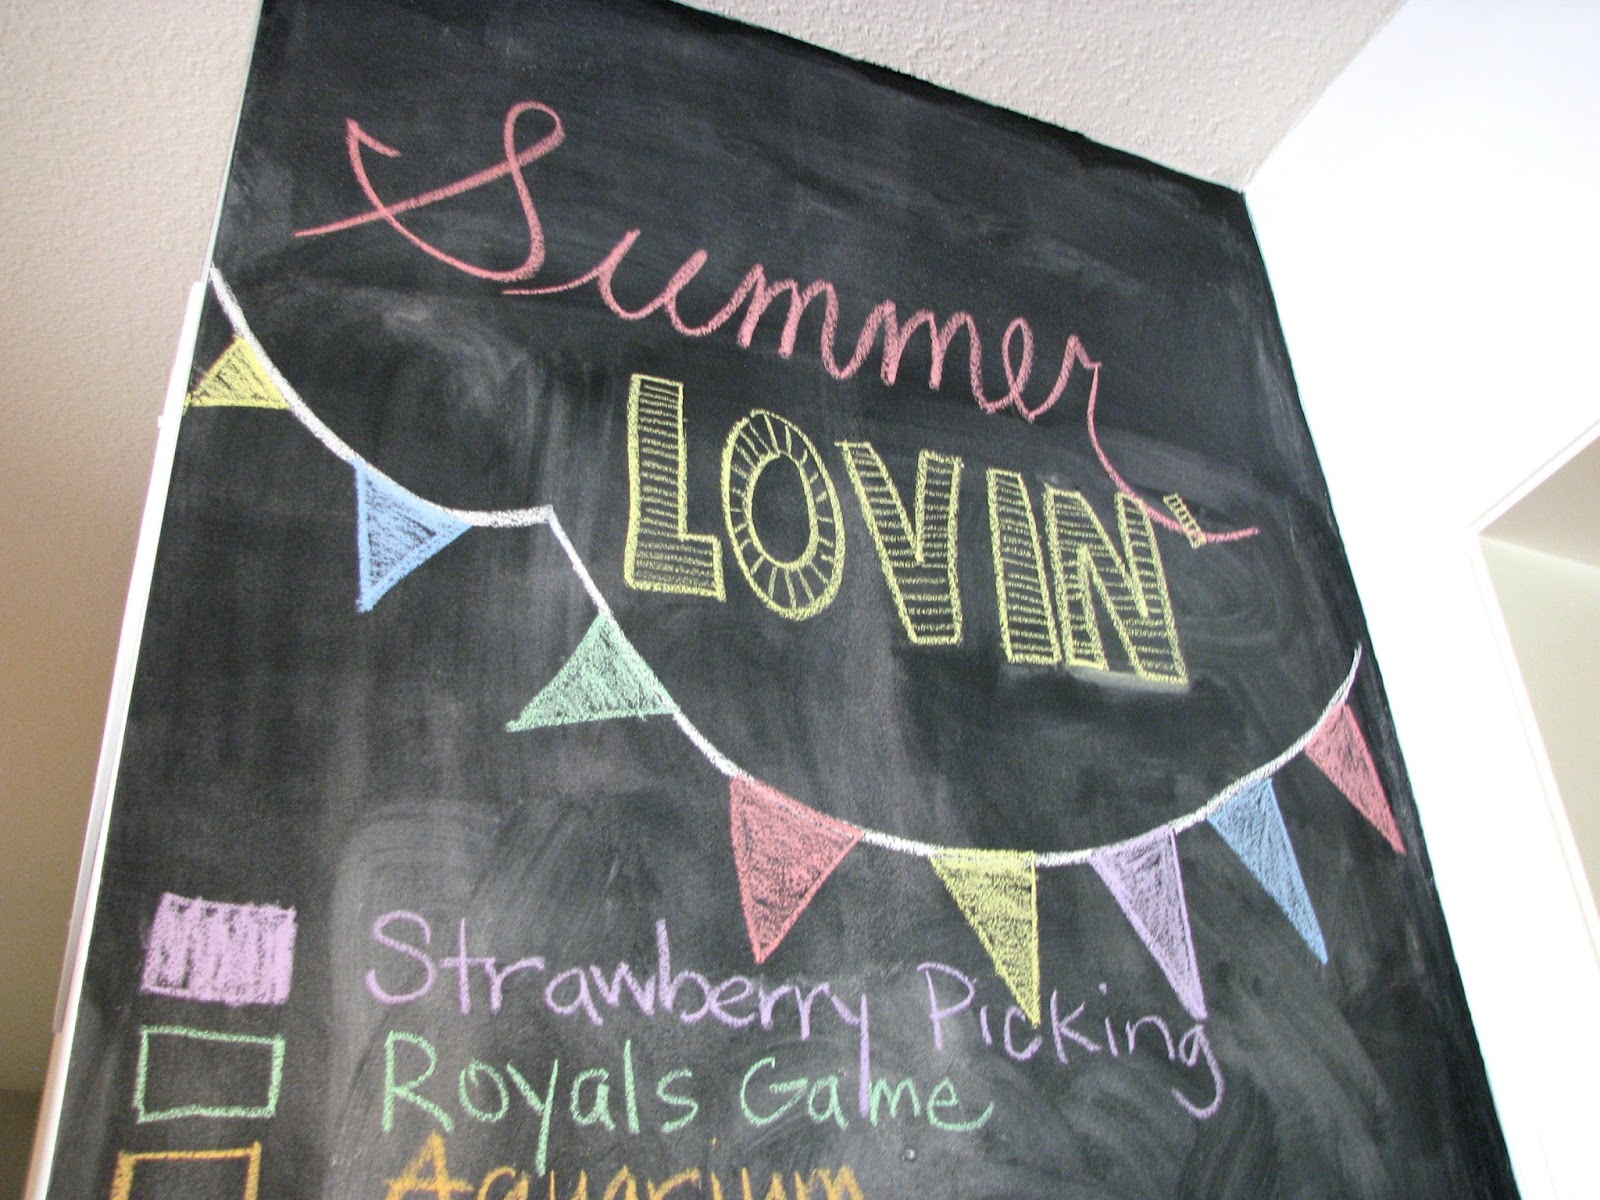 Summer
LOVIN'
Strawberry Picking
Royals Game
Aquarium